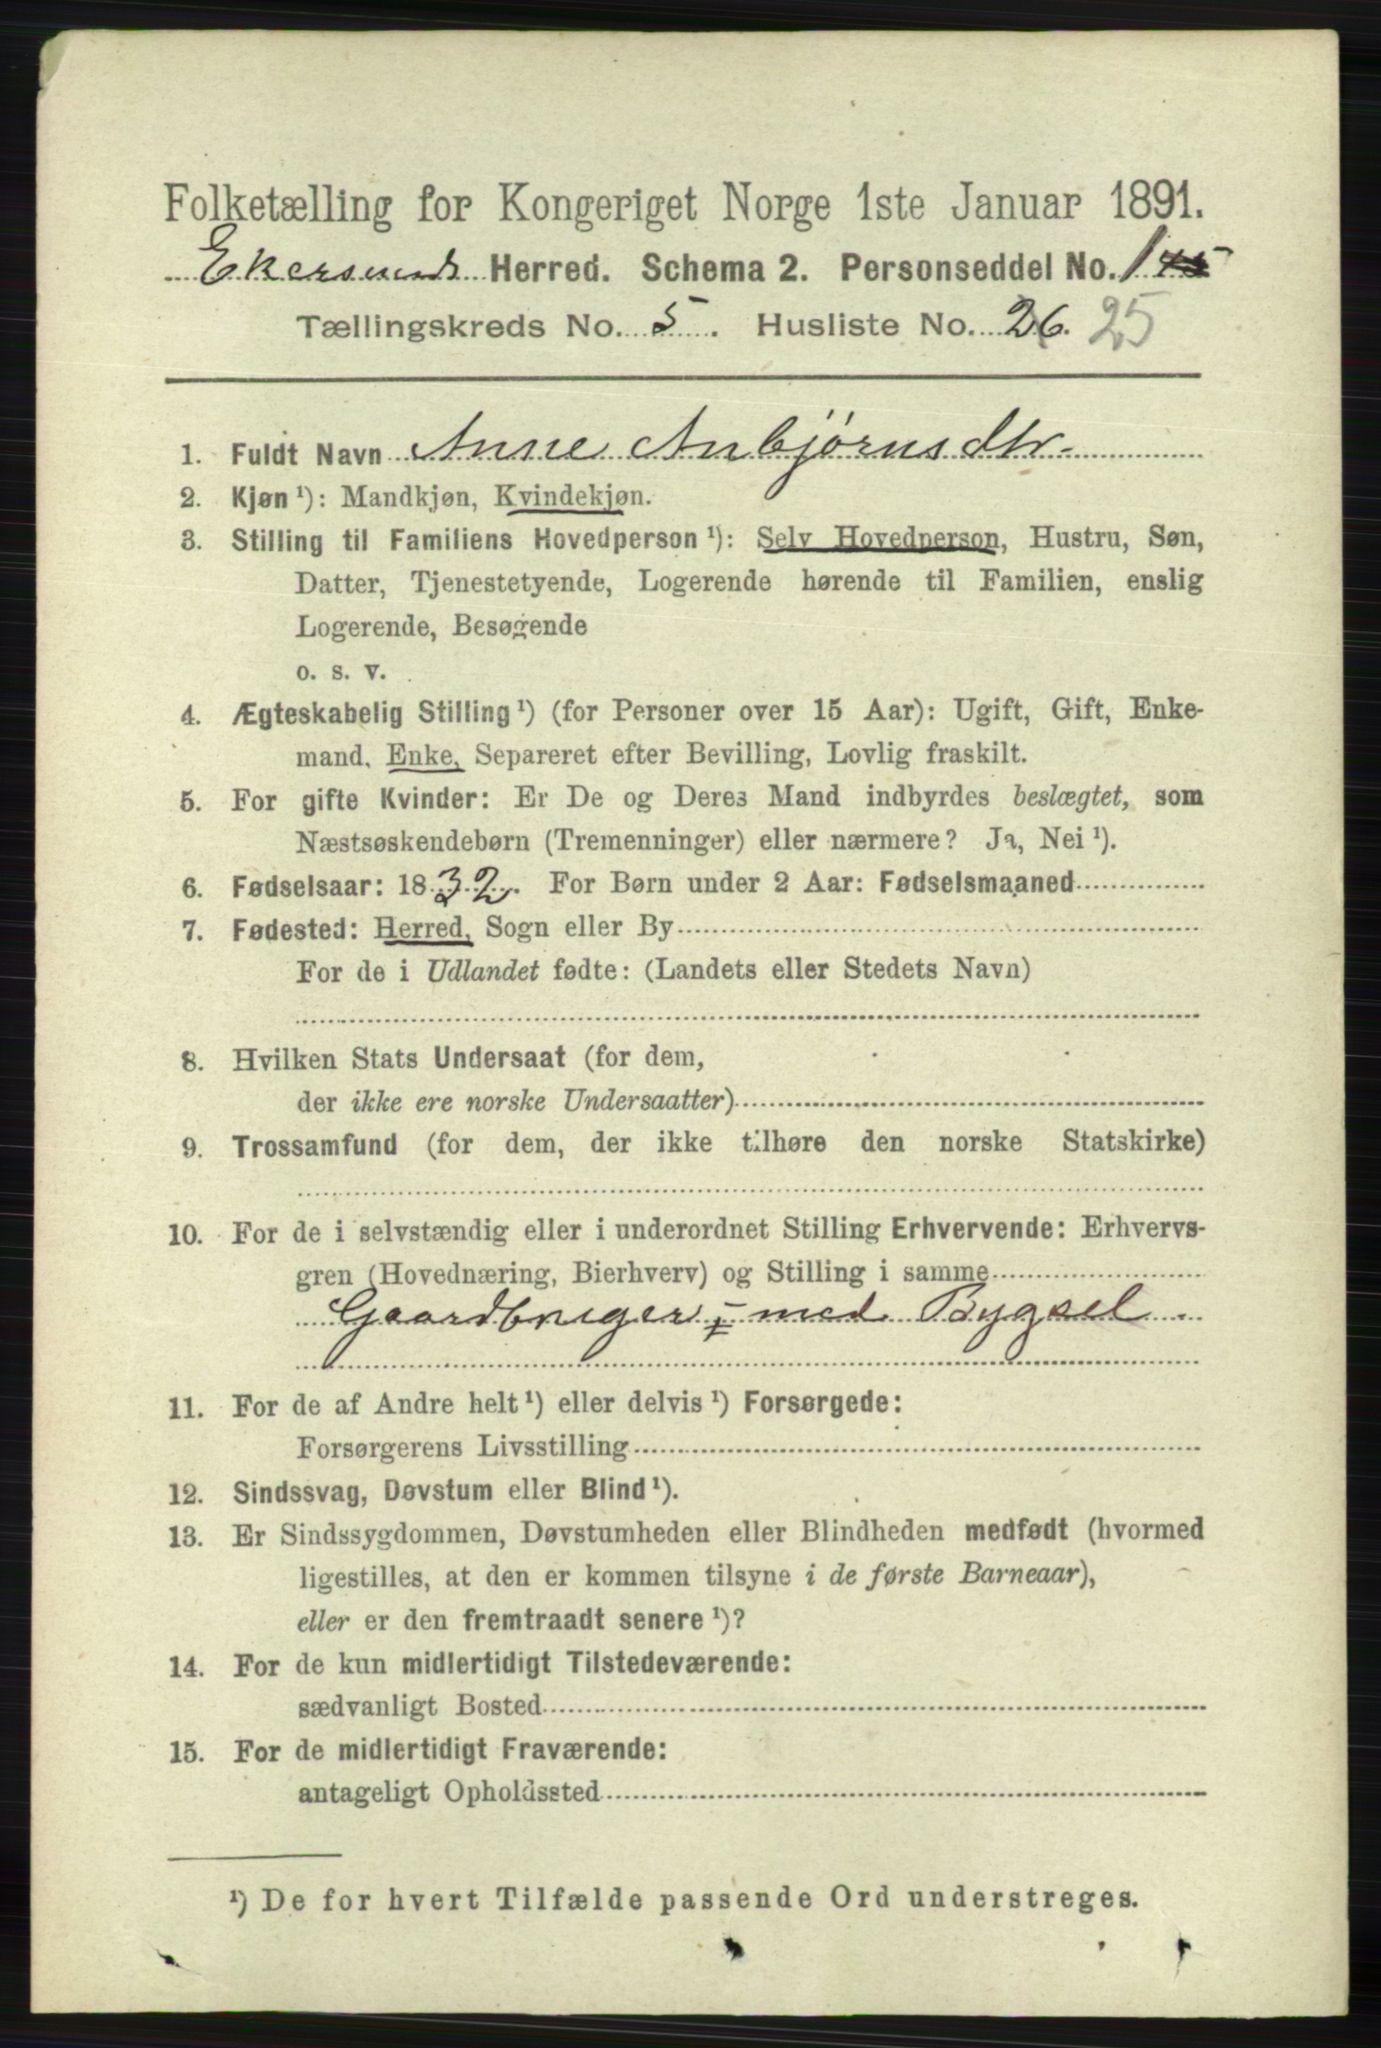 Folketælling for Kongeriget Norge 1ste Januar 1891.
Ekersunds Herred. Schema 2. Personseddel No. 1
Tællingskreds No. 5. Husliste No. 26. 25
1. Fuldt Navn Anne Anbjørnsdtr.
2. Kjøn ¹): Mandkjøn, Kvindekjøn.
3. Stilling til Familiens Hovedperson ¹): Selv Hovedperson, Hustru, Søn,
Datter, Tjenestetyende, Logerende hørende til Familien, enslig
Logerende, Besøgende
o. s. v.
4. Ægteskabelig Stilling ¹) (for Personer over 15 Aar): Ugift, Gift, Enke-
mand, Enke, Separeret efter Bevilling, Lovlig fraskilt.
5. For gifte Kvinder: Er De og Deres Mand indbyrdes beslægtet, som
Næstsøskendebørn (Tremenninger) eller nærmere? Ja, Nei ¹).
6. Fødselsaar: 1832. For Børn under 2 Aar: Fødselsmaaned
7. Fødested: Herred, Sogn eller By
For de i Udlandet fødte: (Landets eller Stedets Navn)
8. Hvilken Stats Undersaat (for dem,
der ikke ere norske Undersaatter)
9. Trossamfund (for dem, der ikke tilhøre den norske Statskirke)
10. For de i selvstændig eller i underordnet Stilling Erhvervende: Erhvervs-
gren (Hovednæring, Bierhverv) og Stilling i samme
Gaardbruger med Bygsel.
11. For de af Andre helt ¹) eller delvis ¹) Forsørgede:
Forsørgerens Livsstilling
12. Sindssvag, Døvstum eller Blind ¹).
13. Er Sindssygdommen, Døvstumheden eller Blindheden medfødt (hvormed
ligestilles, at den er kommen tilsyne i de første Barneaar),
eller er den fremtraadt senere ¹)?
14. For de kun midlertidigt Tilstedeværende:
sædvanligt Bosted
15. For de midlertidigt Fraværende:
antageligt Opholdssted
¹) De for hvert Tilfælde passende Ord understreges.